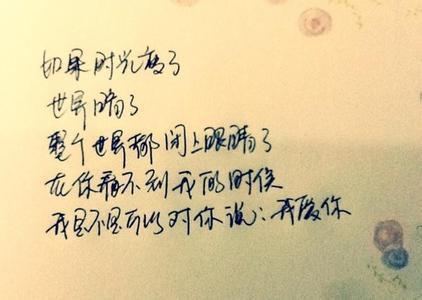 如果时光瘦了
世界暗了
整个世界都闭上眼睛了
在你看不到我的时候
我是不是可以对你说:我爱你